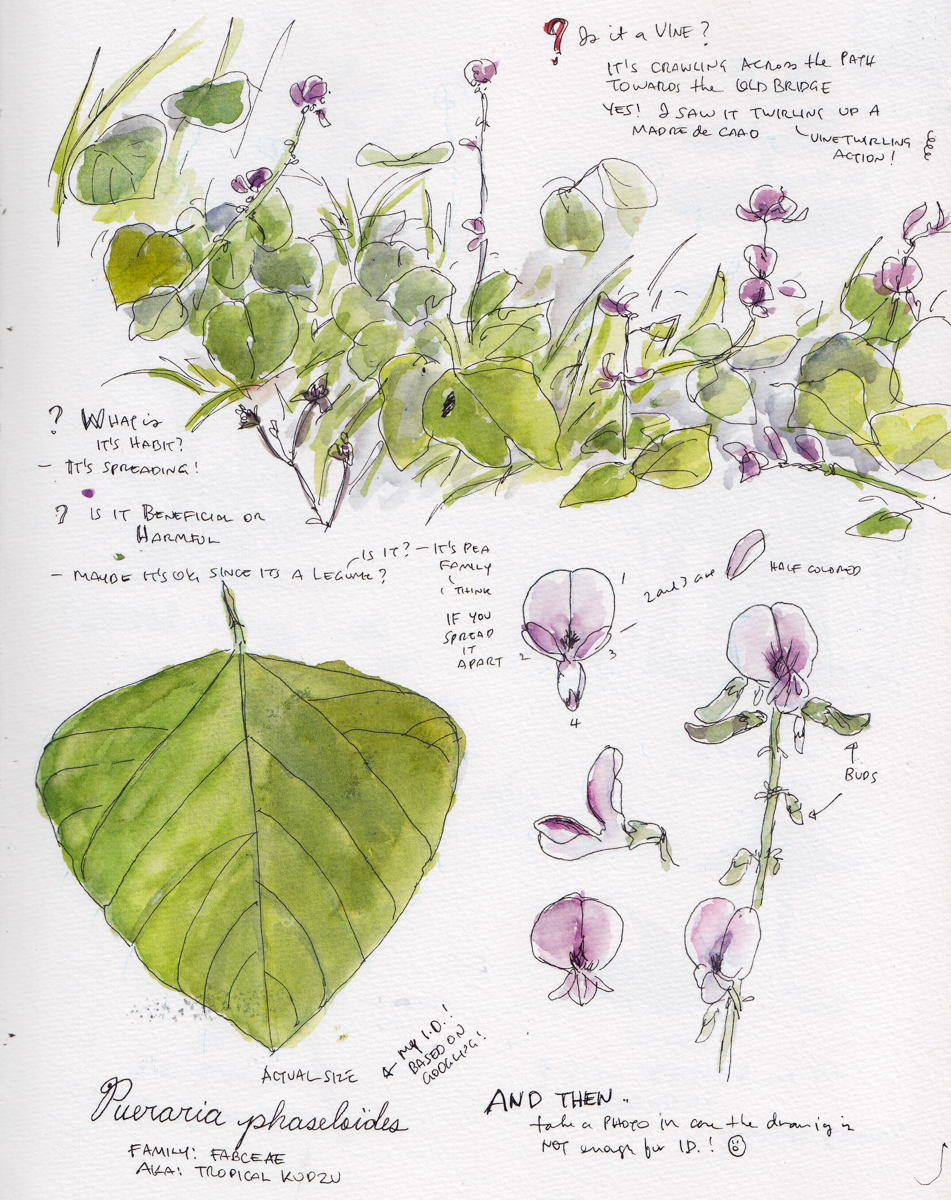 ? Is it a VINE?
IT'S CRAWLING ACROSS the PATH
TOWARDS the OLD BRIDGE
YES! I SAW IT TWIRLING UP A
MADRE de CAAO
VINETWIRLING
ACTION!
? WHAT is
IT'S HABIT?
- IT'S SPREADING!
? IS IT BENEFICIAL OR
HARMFUL
- MAYBE IT'S OK SINCE ITS A LEGUME?
IS IT? - IT'S PEA
FAMILY
I THINK
IF YOU
SPREAD
IT
APART
1
2
3
4
2 and 3 are
HALF COLORED
BUDS
ACTUAL SIZE
MY I.D.!
BASED ON
GOOGLING!
Pueraria phaseloïdes
FAMILY: FABCEAE
AKA: TROPICAL KUDZU
AND THEN..
take a PHOTO in case the drawing is
NOT enough for I.D.!